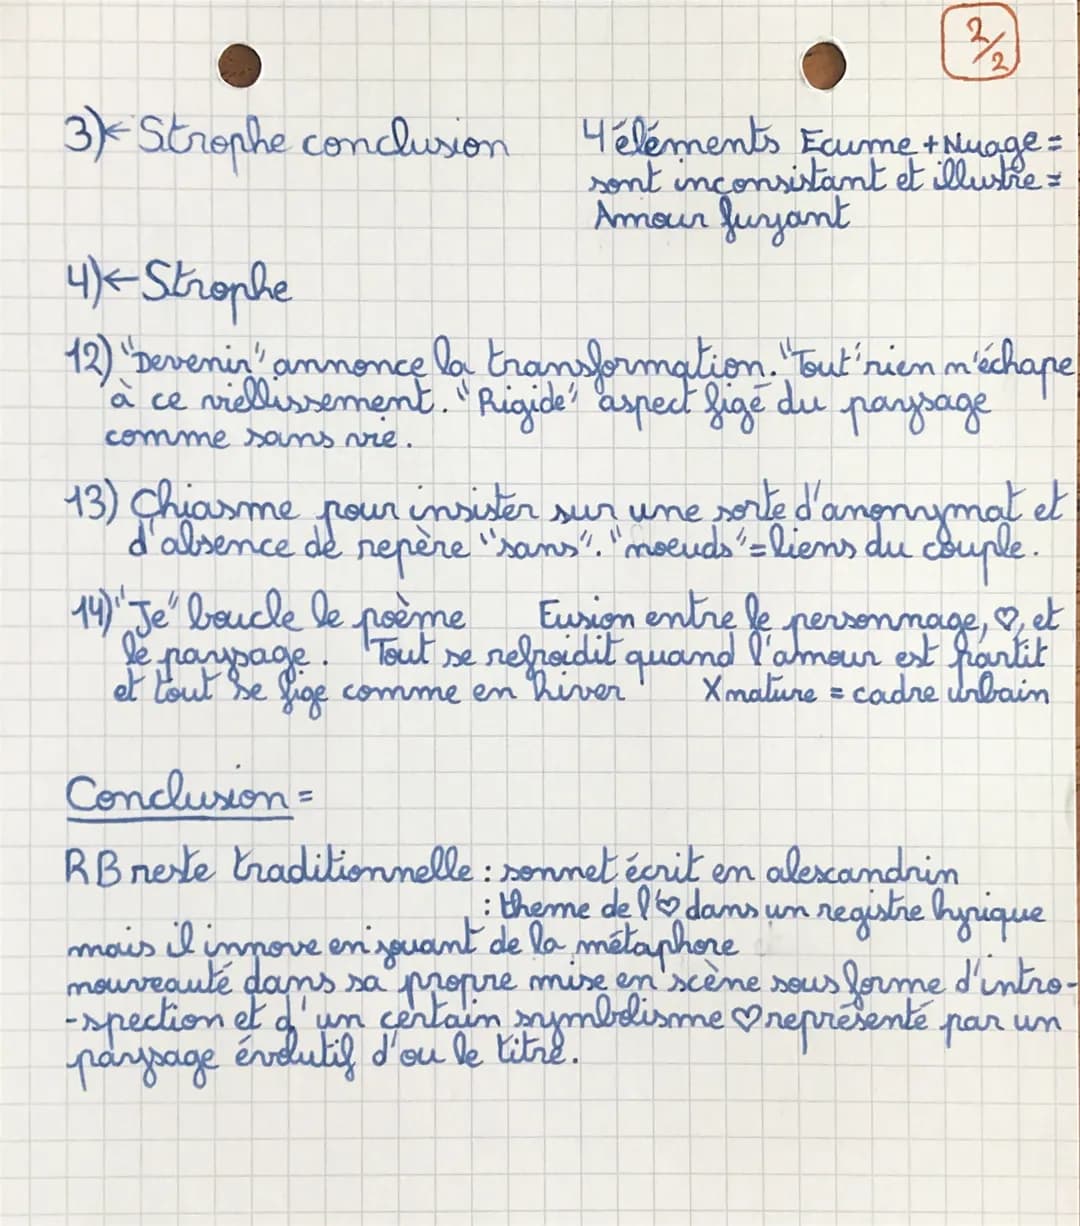 2/2
3)← Strophe conclusion 4 éléments Ecume + Nuage =
sont inconsistant et illustre =
Amour fuyant
4)← Strophe
12) "Devenir" annonce la transformation. "Tout" rien m'échape
à ce viellissement. "Rigide" aspect figé du paysage
comme sans vie.
13) Chiasme pour insister sur une sorte d'anonymat et
d'absence de repère "sans". "noeuds" = liens du couple.
14) "Je" boucle le poème Fusion entre le personnage, ♡, et
le paysage. Tout se refroidit quand l'amour est partit
et tout se fige comme en hiver X nature = cadre urbain
Conclusion =
RB reste traditionnelle : sonnet écrit en alexandrin
: theme de l'♡ dans un registre lyrique
mais il innove en jouant de la métaphore
nouveauté dans sa propre mise en scène sous forme d'intro-
-spection et d'un certain symbolisme ♡ représenté par un
paysage évolutif d'ou le titre.